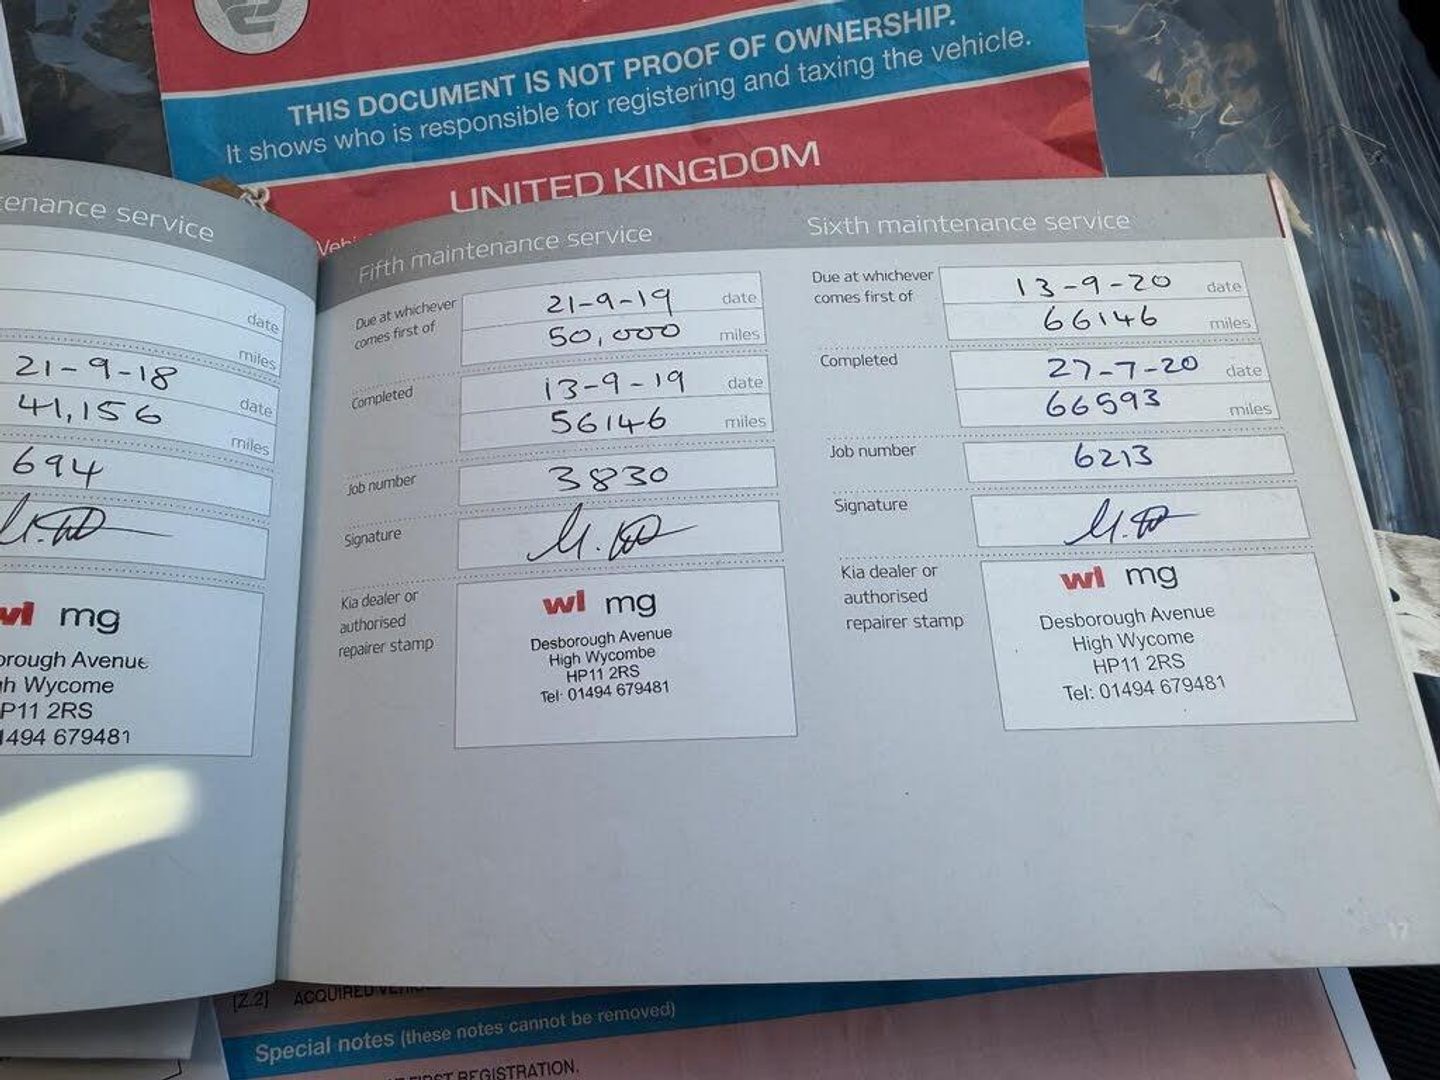 THIS DOCUMENT IS NOT PROOF OF OWNERSHIP.
It shows who is responsible for registering and taxing the vehicle.
UNITED KINGDOM
tenance service
date
miles
21-9-18 date
41,156 miles
694
wl mg
orough Avenue
h Wycome
P11 2RS
1494 679481
Fifth maintenance service
Due at whichever
comes first of
21-9-19 date
50,000 miles
Completed
13-9-19 date
56146 miles
Job number
3830
Signature
Kia dealer or
authorised
repairer stamp
wl mg
Desborough Avenue
High Wycombe
HP11 2RS
Tel: 01494 679481
Sixth maintenance service
Due at whichever
comes first of
13-9-20 date
66146 miles
Completed
27-7-20 date
66593 miles
Job number
6213
Signature
Kia dealer or
authorised
repairer stamp
wl mg
Desborough Avenue
High Wycome
HP11 2RS
Tel: 01494 679481
17
[Z.2] ACQUIRED
Special notes (these notes cannot be removed)
FIRST REGISTRATION.